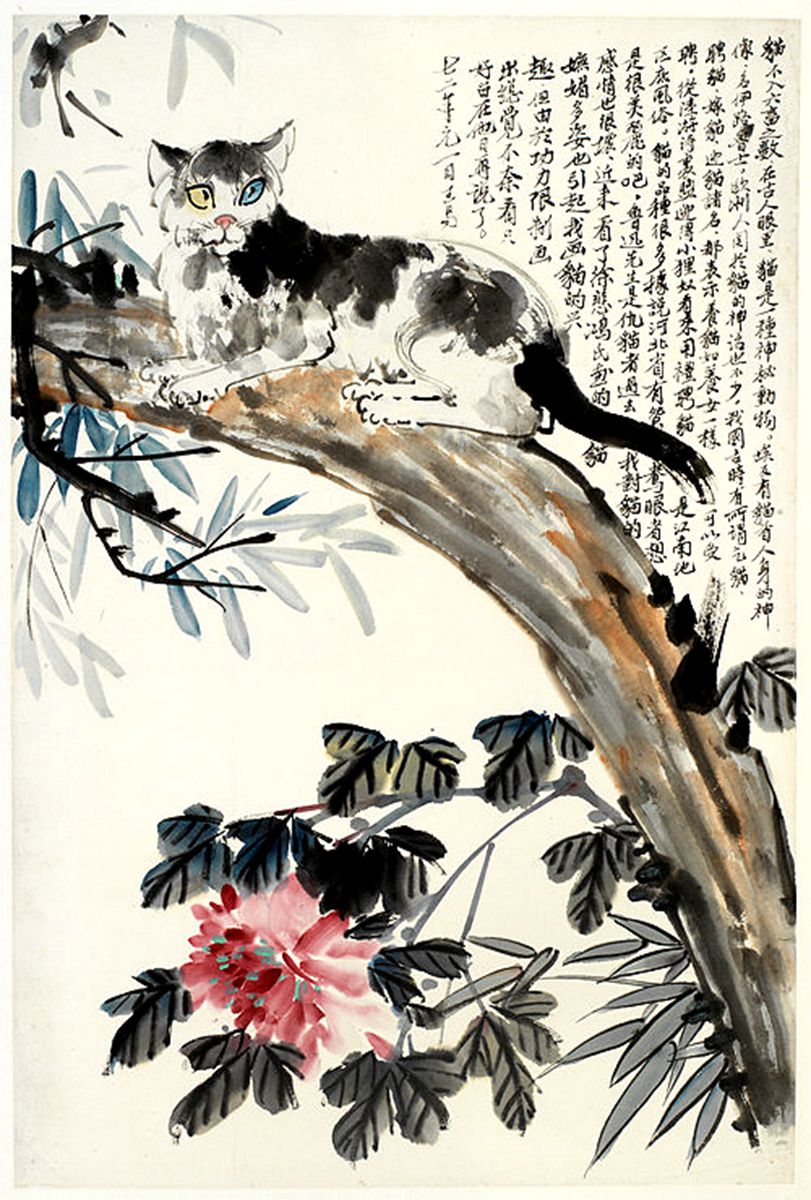 貓不入六畜之數在古人眼里,貓是一種神秘動物。埃及有貓首人身的神
像名伊路曹士,歐洲人関於貓的神话也不少,我國古時有所谓乞貓、
聘貓、嫁貓、迎貓諸名,都表示養貓如養女一樣可以受
聘,從陸游诗裹盐迎得小狸奴看来用禮聘貓是江南地
区底風俗。貓的品種很多據說河北省有鴦眼者想
是很美麗的吧,魯迅先生是仇貓者過去我對貓的
感情也很壞,近来看了徐悲鴻氏画的貓
嫵媚多姿也引起我画貓的兴
趣,但由於功力限制画
出總覺不奈看只
好留在他日再說了。
年元一月